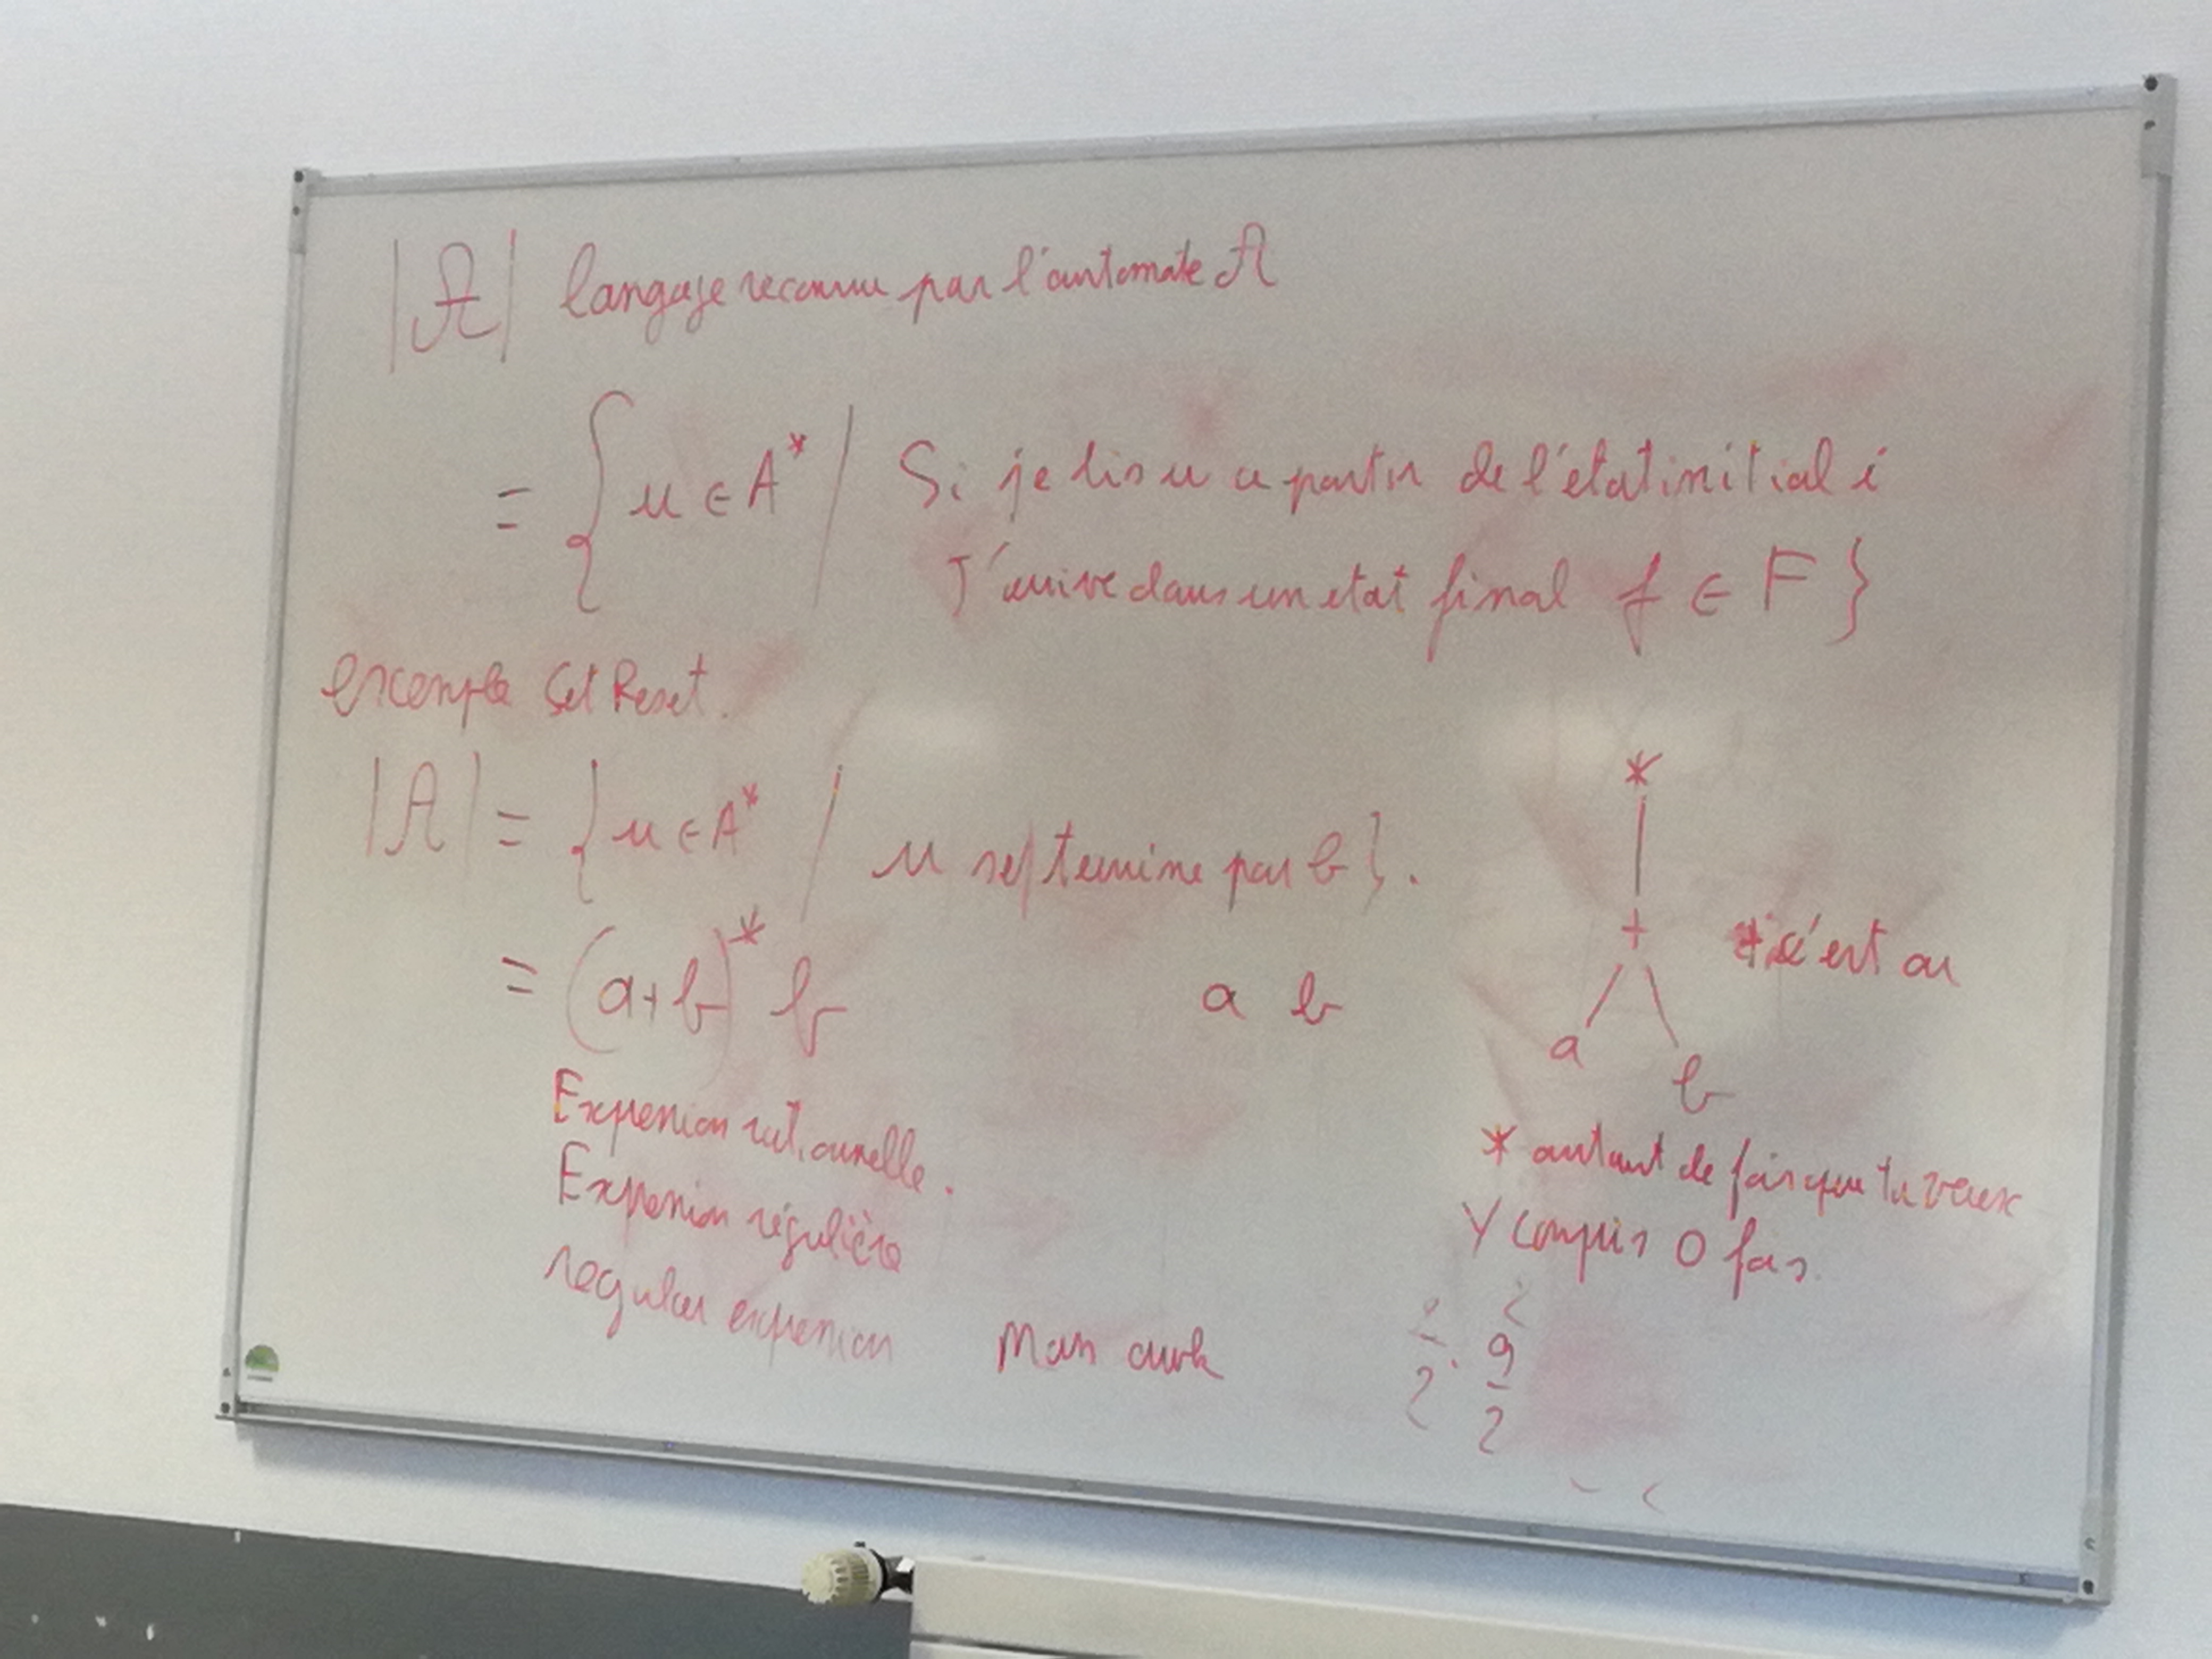 |A| langage reconnu par l'automate A
= { u ∈ A* / Si je lis u a partir de l'état initial i
J'arrive dans un etat final f ∈ F }
exemple Set Reset.
|A| = { u ∈ A* / u se termine par b }.
= (a+b)* b
a b
Expression rationnelle.
Expression régulière
regular expression
Man awk
*
+
a b
+ c'est ou
* autant de fois que tu veux
Y compris 0 fois.
9
2 2